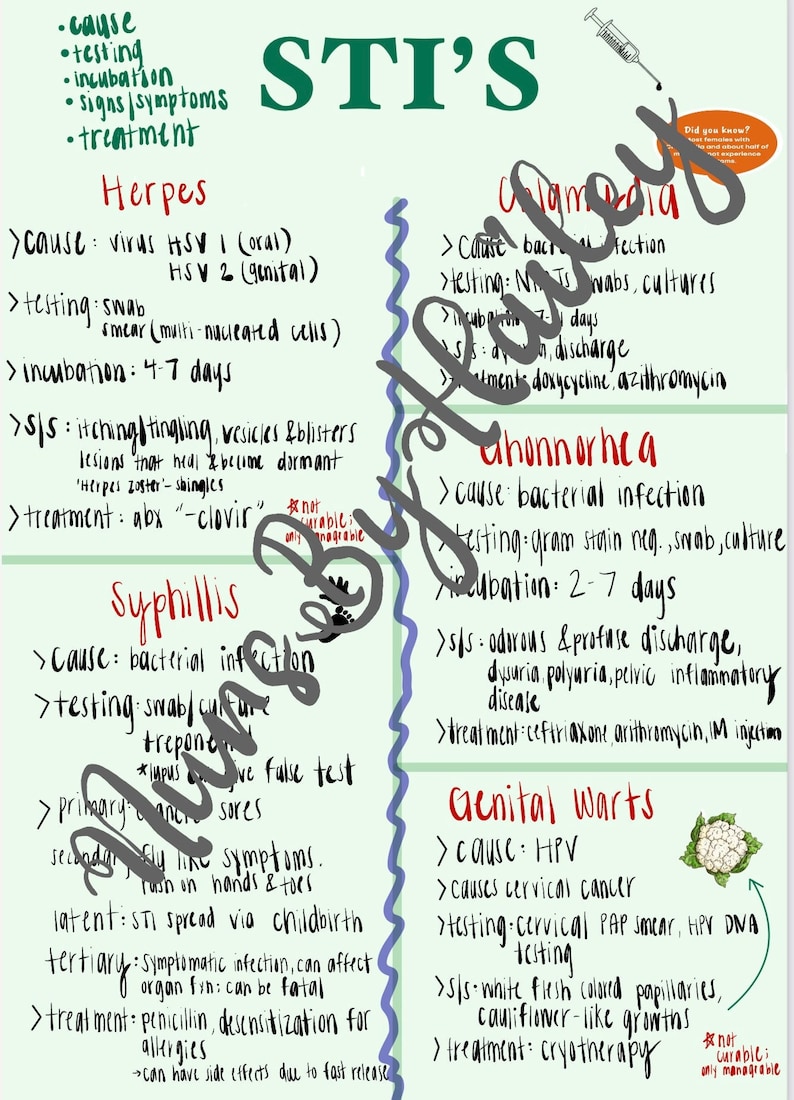 • cause
• testing
• incubation
• signs/symptoms
• treatment
STI'S
Did you know?
Most females with
and about half of
not experience
Herpes
>cause: virus HSV 1 (oral)
HSV 2 (genital)
>testing: swab
smear (multi-nucleated cells)
>incubation: 4-7 days
>s/s: itching/tingling, vesicles & blisters
lesions that heal & become dormant
'Herpes zoster' - shingles
>treatment: abx "-clovir"
*not
curable;
only managrable
Syphillis
>cause: bacterial infection
>testing: swab/culture
*lupus give false test
>primary: sores
like symptoms.
rash on hands & toes
latent: STI spread via childbirth
tertiary: symptomatic infection, can affect
organ fxn; can be fatal
>treatment: penicillin, desensitization for
allergies
→can have side effects due to fast release
Chlamydia
>cause: bacterial infection
>testing: swabs, cultures
>incubation: days
>s/s: discharge
>treatment: doxycycline, azithromycin
Ghonnorhea
>cause: bacterial infection
>testing: gram stain neg., swab, culture
>incubation: 2-7 days
>s/s: odorous & profuse discharge,
dysuria, polyuria, pelvic inflammatory
disease
>treatment: ceftriaxone, arithromycin, IM injection
Genital Warts
>cause: HPV
>causes cervical cancer
>testing: cervical PAP smear, HPV DNA
testing
>s/s: white flesh colored papillaries,
cauliflower-like growths
>treatment: cryotherapy
*not
curable;
only managrable
By Hailey